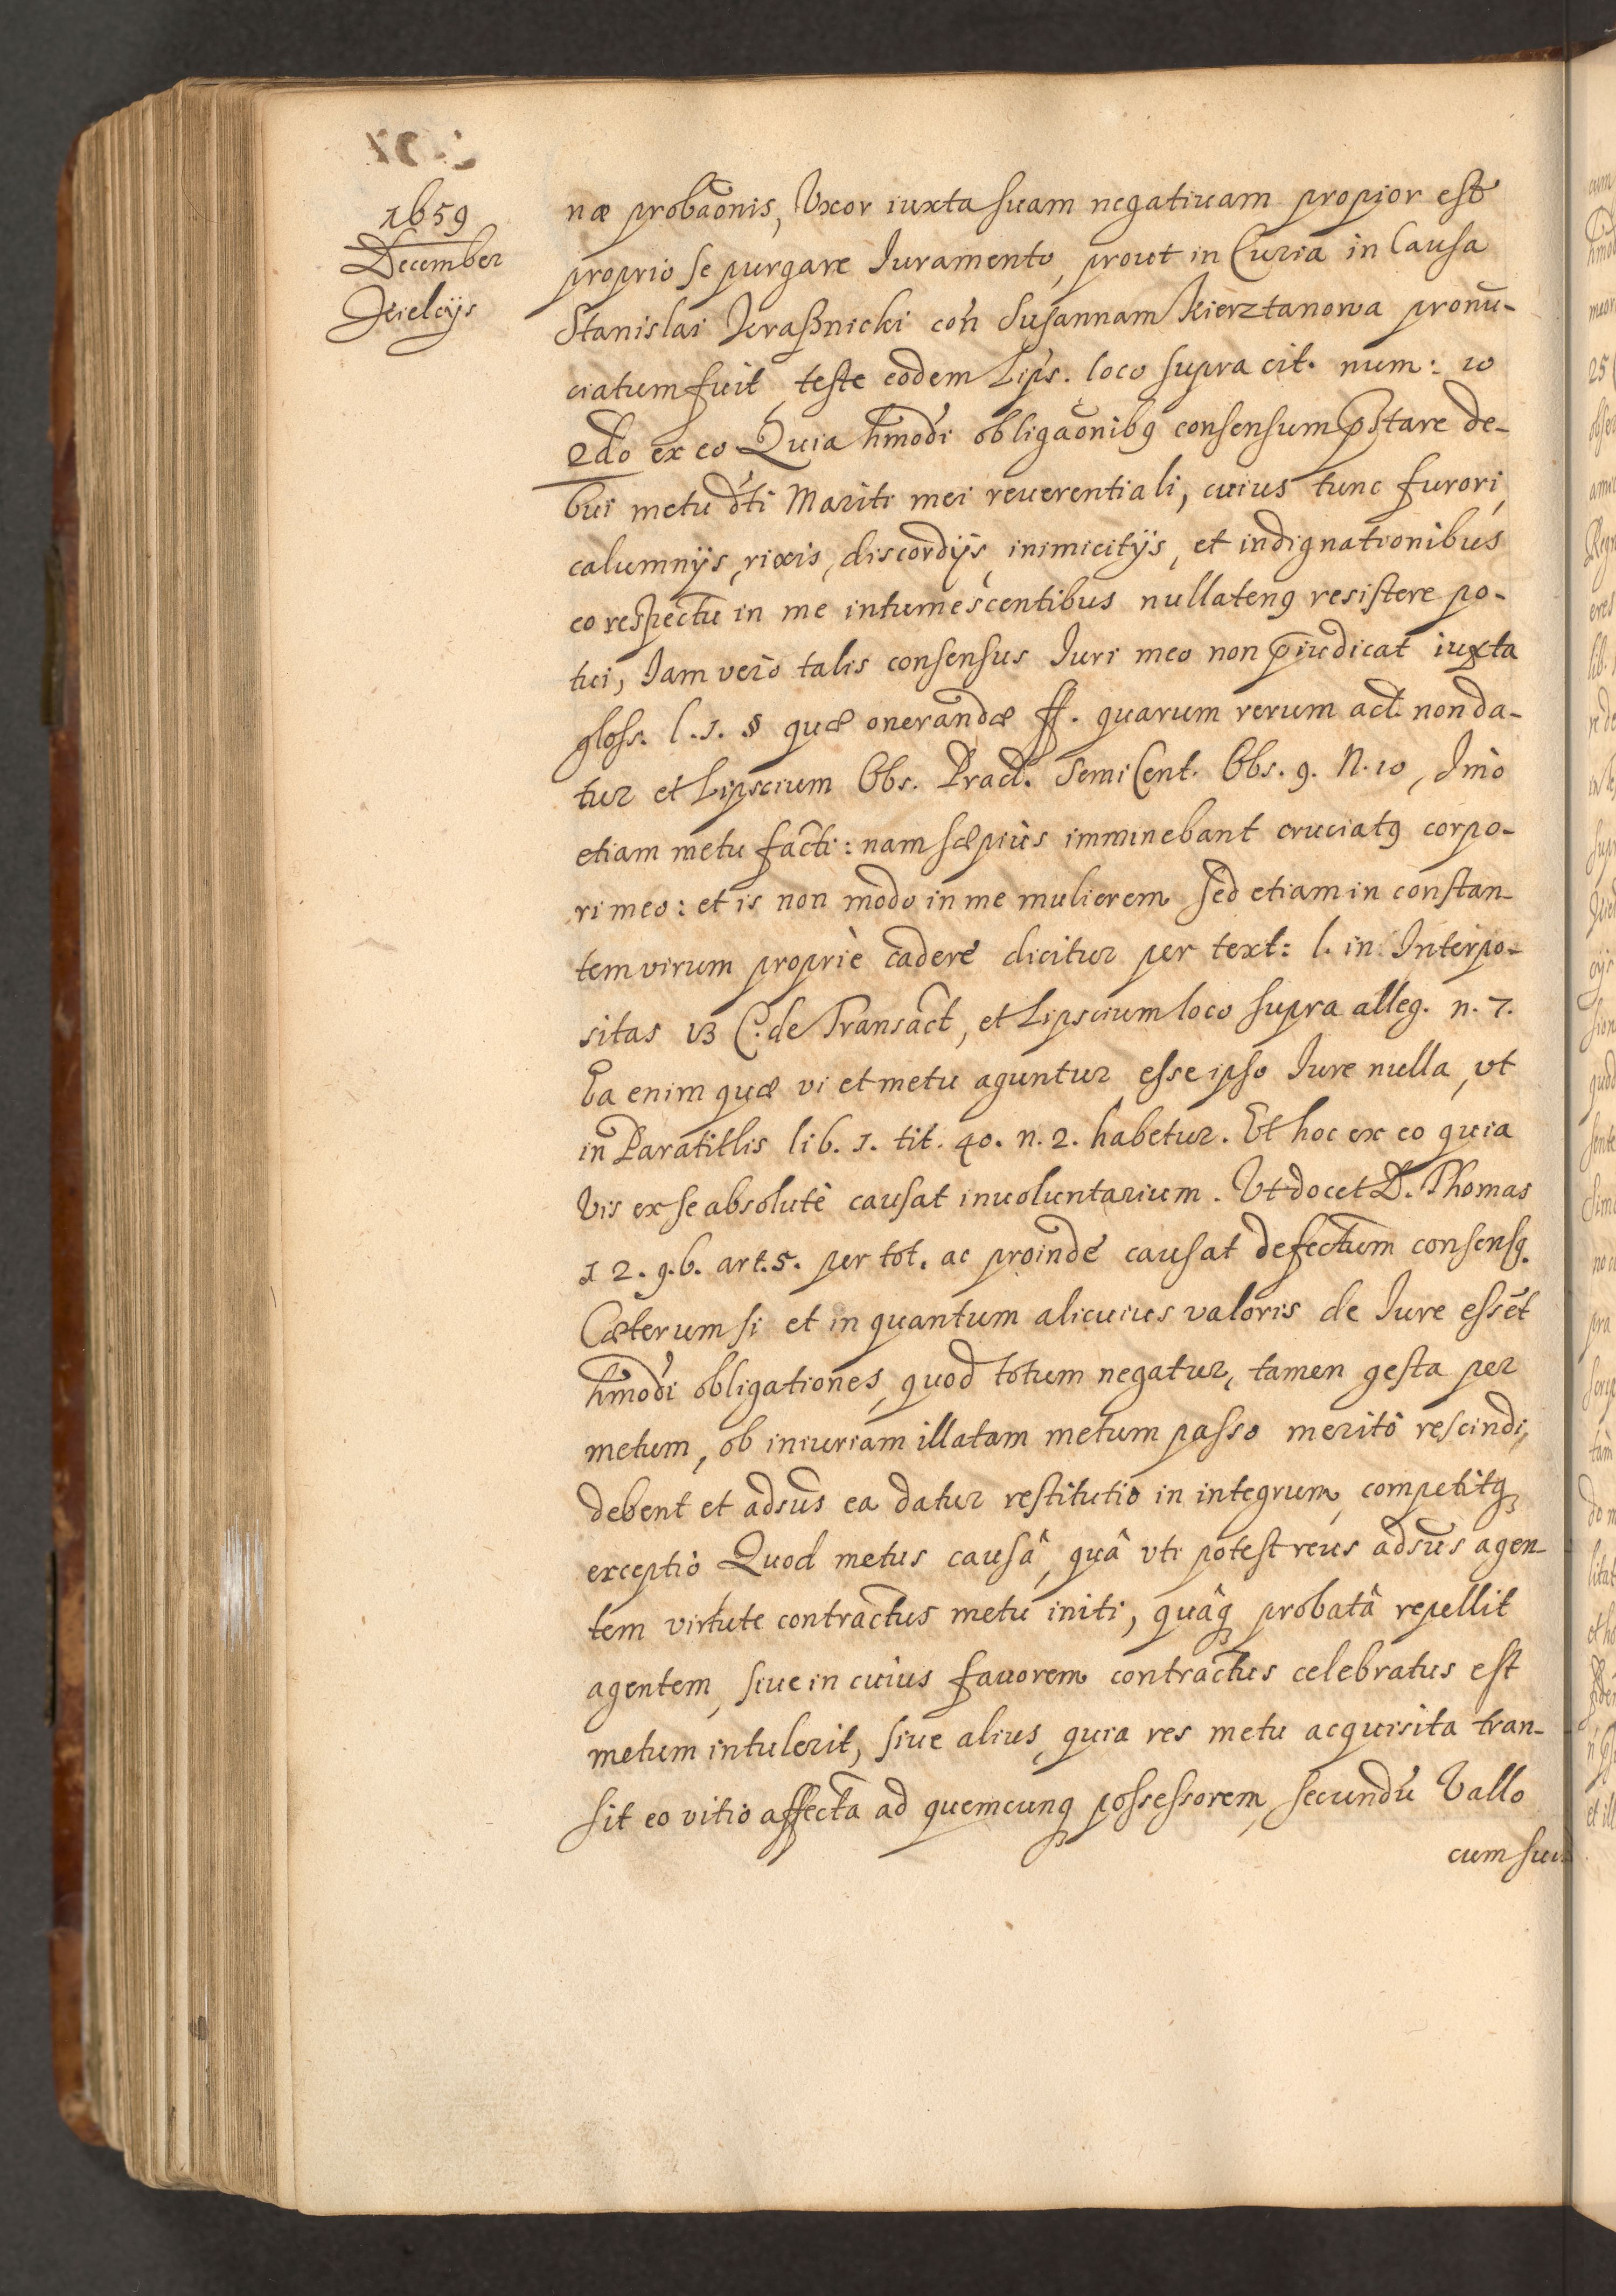 1659
December
Kielcijs
næ probãonis, Vxor iuxta suam negatiuam propior est
proprio se purgare Iuramento, prout in Curia in Causa
Stanislai Kraßnicki con̄ Susannam Kierztanowa pronū-
ciatum fuit, teste eodem Lips. loco supra cit. num: 10
2do ex eo Quia hmōdi obligãonibꝰ consensum p̄stare de-
bui metu dti Mariti mei reuerentiali, cuius tunc furori,
calumnijs, rixis, discordijs, inimicitijs, et indignationibus
eo respectu in me intumescentibus nullatenꝰ resistere po-
tui, Iam verò talis consensus Iuri meo non p̄iudicat iuxta
gloss. l. 1. § quæ onerandæ ff. quarum rerum act. non da-
tur et Lipscium Obs. Pract. Semi Cent. Obs. 9. N. 10, Imò
etiam metu facti: nam sæpiùs imminebant cruciatꝰ corpo-
ri meo: et is non modo in me mulierem sed etiam in constan-
tem virum propriè cadere dicitur per text: l. in Interpo-
sitas 13 C. de Transact, et Lipscium loco supra alleg. n. 7.
Ea enim quæ vi et metu aguntur esse ipso Iure nulla, vt
in Paratitlis lib. 1. tit. 40. n. 2. habetur. Et hoc ex eo quia
Vis ex se absolutè causat inuoluntarium. Vt docet D. Thomas
1 2. q. 6. art. 5. per tot. ac proinde causat defectum consensꝰ.
Cæterum si et in quantum alicuius valoris de Iure essēt
hmōdi obligationes, quod totum negatur, tamen gesta per
metum, ob iniuriam illatam metum passo meritò rescindi,
debent et adsūs ea datur restitutio in integrum, competitqꝫ
exceptio Quod metus causâ, quâ vti potest reus adsūs agen-
tem virtute contractus metu initi, quâqꝫ probatâ repellit
agentem, siue in cuius fauorem contractus celebratus est
metum intulerit, siue alius, quia res metu acquisita tran-
sit eo vitio affecta ad quemcunqꝫ possessorem, secundū Vallo
cum sui